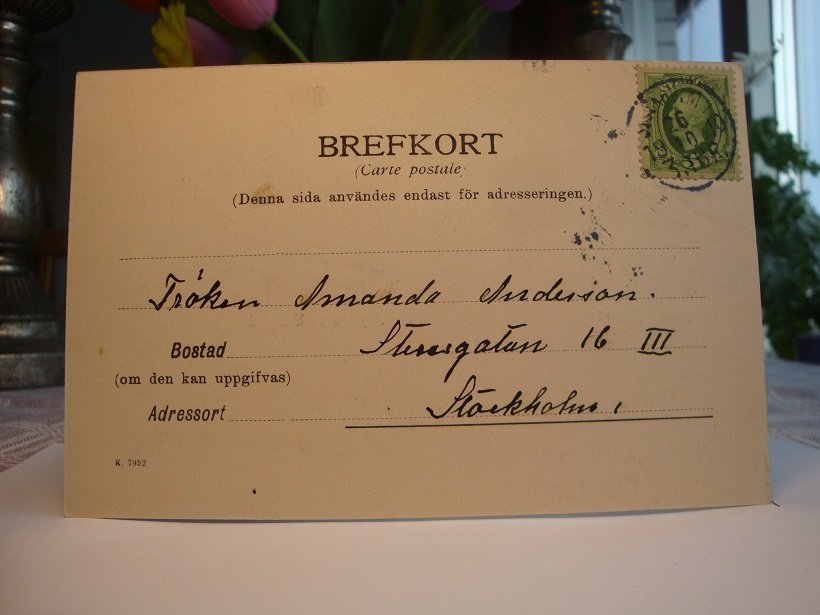 BREFKORT
(Carte postale)
(Denna sida användes endast för adresseringen.)
Fröken Amanda Anderson.
Bostad 16 III
(om den kan uppgifvas)
Adressort Stockholm,
K. 7952